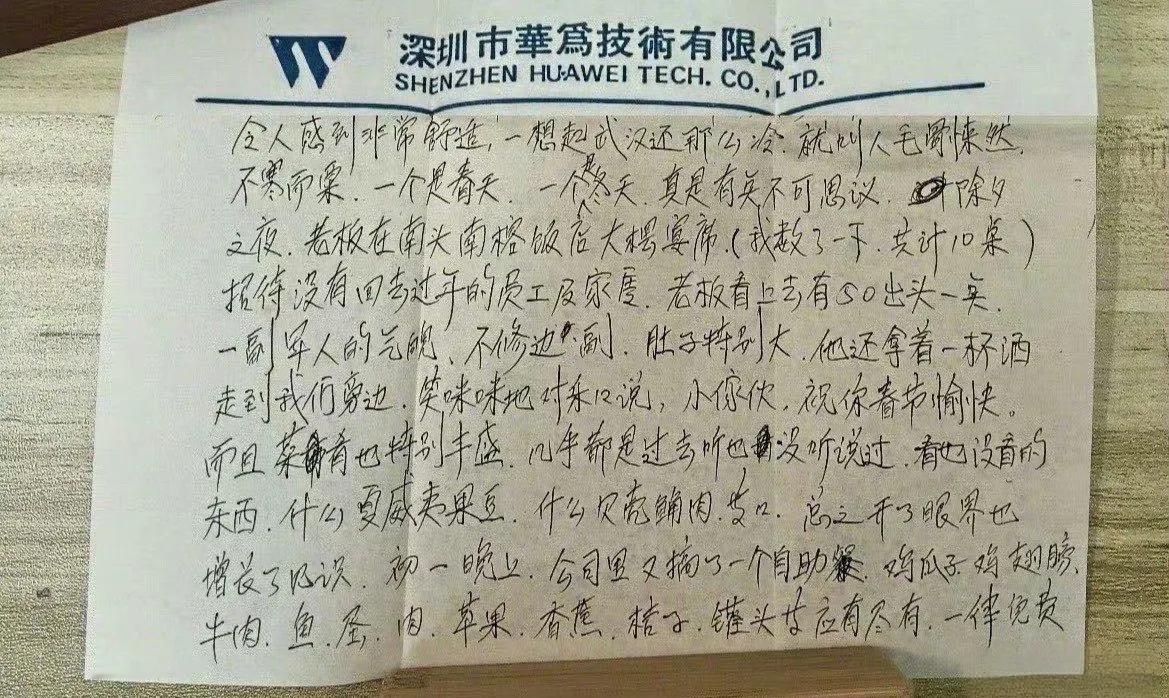 深圳市華爲技術有限公司
SHENZHEN HUAWEI TECH. CO., LTD.
令人感到非常舒适,一想起武汉还那么冷.就叫人毛骨悚然.
不寒而栗.一个是春天.一个是冬天.真是有矣不可思议.除夕
之夜.老板在南头南榕饭店大摆宴席.(我数了一下.共计10桌)
招待没有回去过年的员工及家属.老板看上去有50出头一矣.
一副军人的气魄、不修边副.肚子特别大.他还拿着一杯酒
走到我们旁边.笑咪咪地对乐口说,小傢伙.祝你春节愉快。
而且菜肴也特别丰盛.几乎都是过去听也没听说过.看也没看的
东西.什么夏威夷果豆.什么贝壳鲔肉.等等.总之开了眼界也
增长了见识.初一晚上.公司里又搞了一个自助餐.鸡爪子鸡翅膀、
牛肉.鱼.蛋.肉.苹果.香蕉.桔子.罐头等应有尽有.一律免费